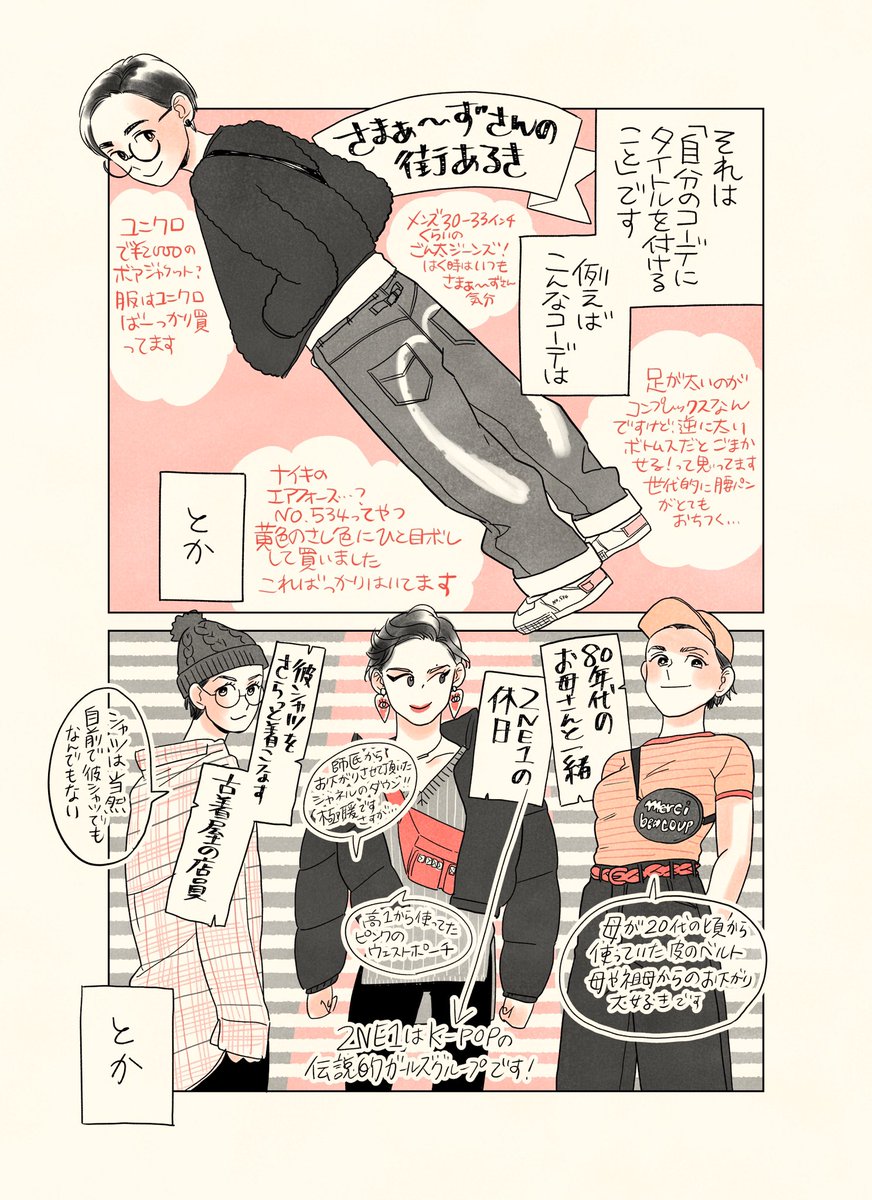 それは
「自分のコーデに
タイトルを付ける
こと」です
例えば
こんなコーデは
さまぁ〜ずさんの
街あるき
メンズ30-33インチ
くらいの
ごん太ジーンズ!
はく時はいつも
さまぁ〜ずさん
気分
ユニクロ
で¥2000の
ボアジャケット?
服はユニクロ
ばーっかり買
ってます
足が太いのが
コンプレックスなん
ですけど!逆に太い
ボトムスだとごまか
せる!って思ってます
世代的に腰パン
がとても
おちつく…
ナイキの
エアフォース…?
NO.534ってやつ
黄色のさし色にひと目ボレ
して買いました
こればっかりはいてます
とか
80年代の
お母さんと一緒
merci
beaucoup
母が20代の頃から
使っていた皮のベルト
母や祖母からのお下がり
大好きです
2NE1の
休日
師匠から
お下がりさせて頂いた
シャネルのダウン!!
極暖です!
さすが…
高1から使ってた
ピンクの
ウェストポーチ
2NE1はK-POPの
伝説的ガールズグループです!
彼シャツを
さらっと着こなす
古着屋の店員
シャツは当然
自前で彼シャツでも
なんでもない
とか